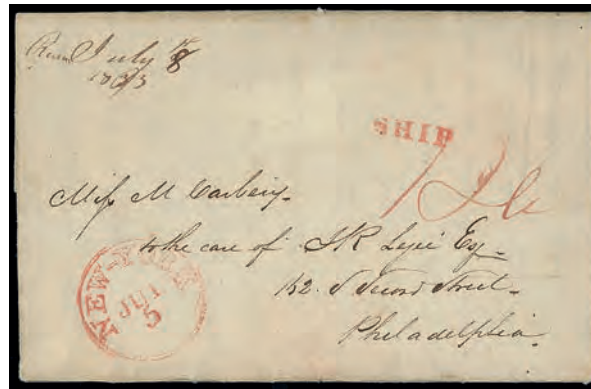 July 8
SHIP
Miss M Carbery
to the care of JR
152 S Second Street
Philadelphia
NEW-YORK
JUL
5